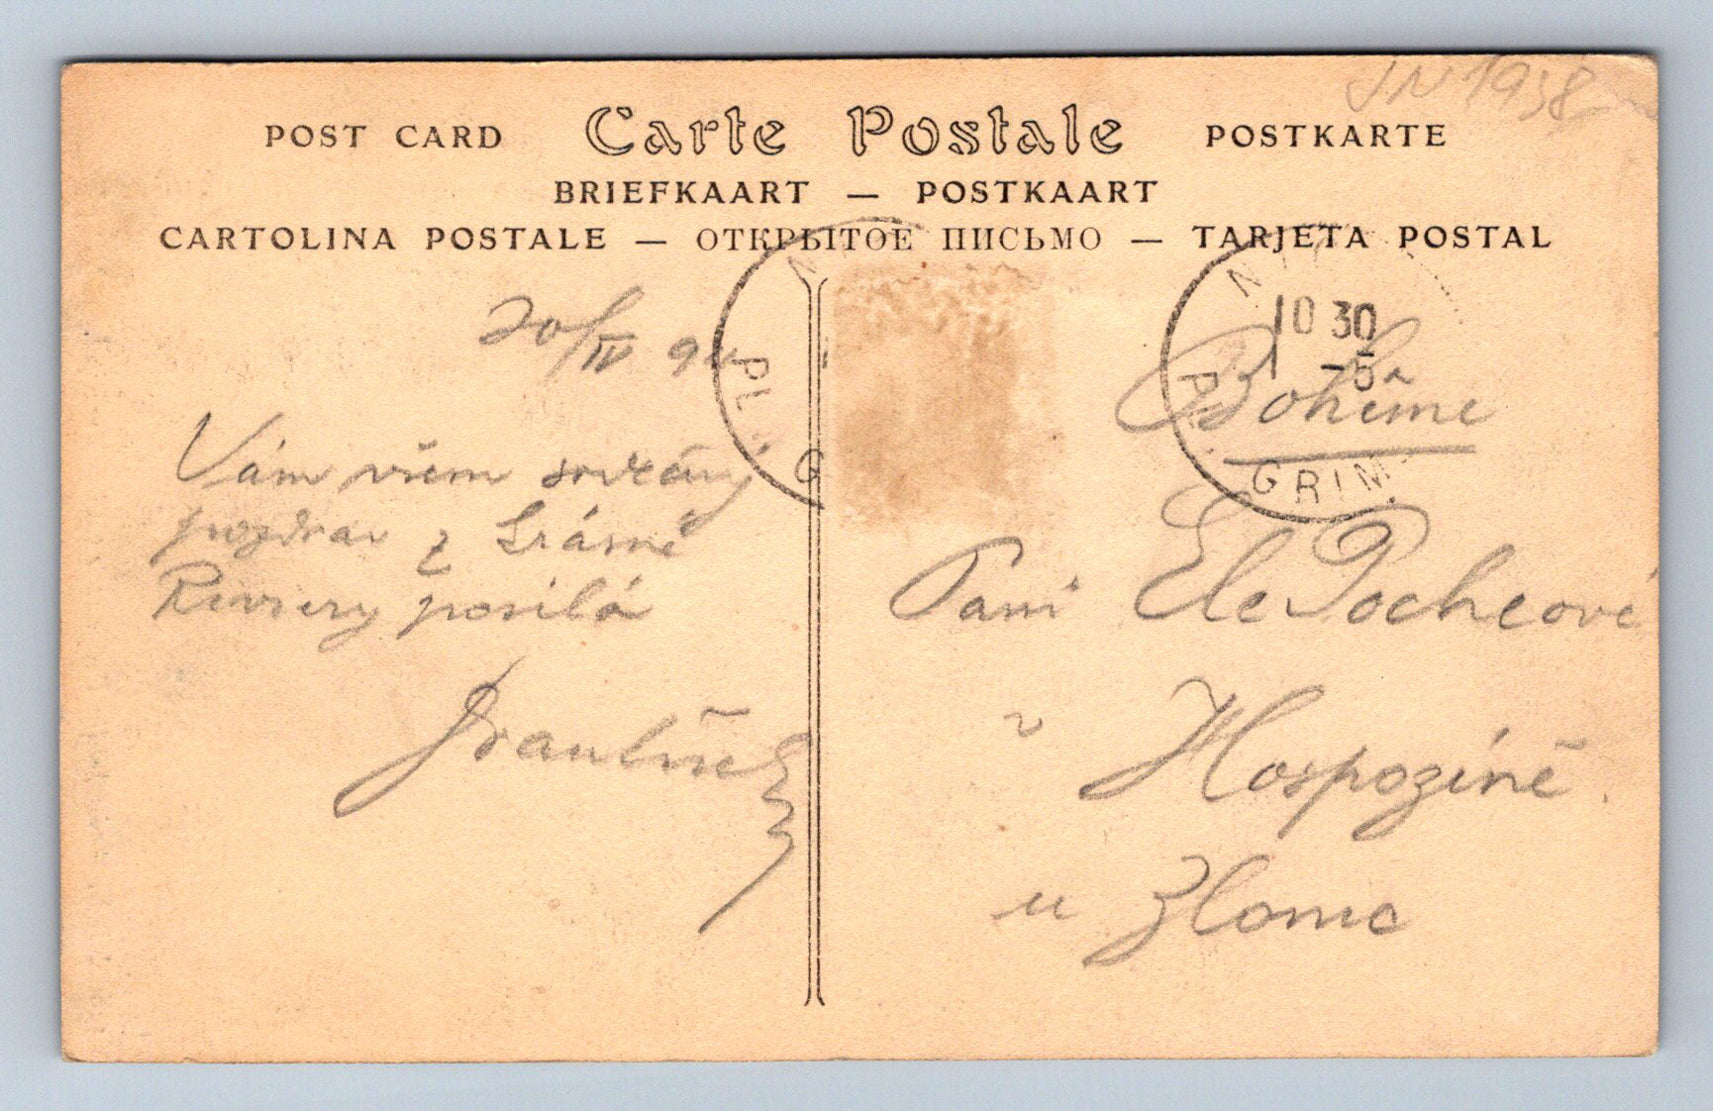 JN 1938
POST CARD Carte Postale POSTKARTE
BRIEFKAART — POSTKAART
CARTOLINA POSTALE — ОТКРЫТОЕ ПИСЬМО — TARJETA POSTAL
20/IV
Vám všem srdečný
pozdrav z krásné
Riviery posílá
PL G
10 30
1 -5
GRIM
Bohême
Paní Ele Pochcové
v Hospozíně
u Zlonic